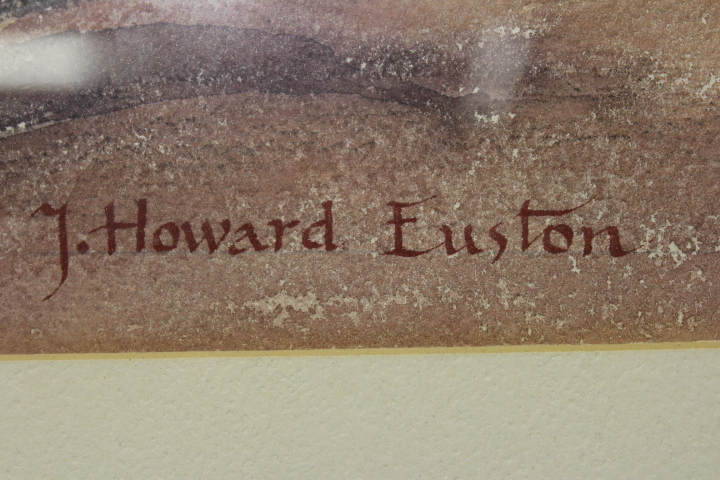 J. Howard Euston